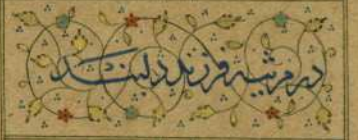 در مرثیه فرزند دلبند